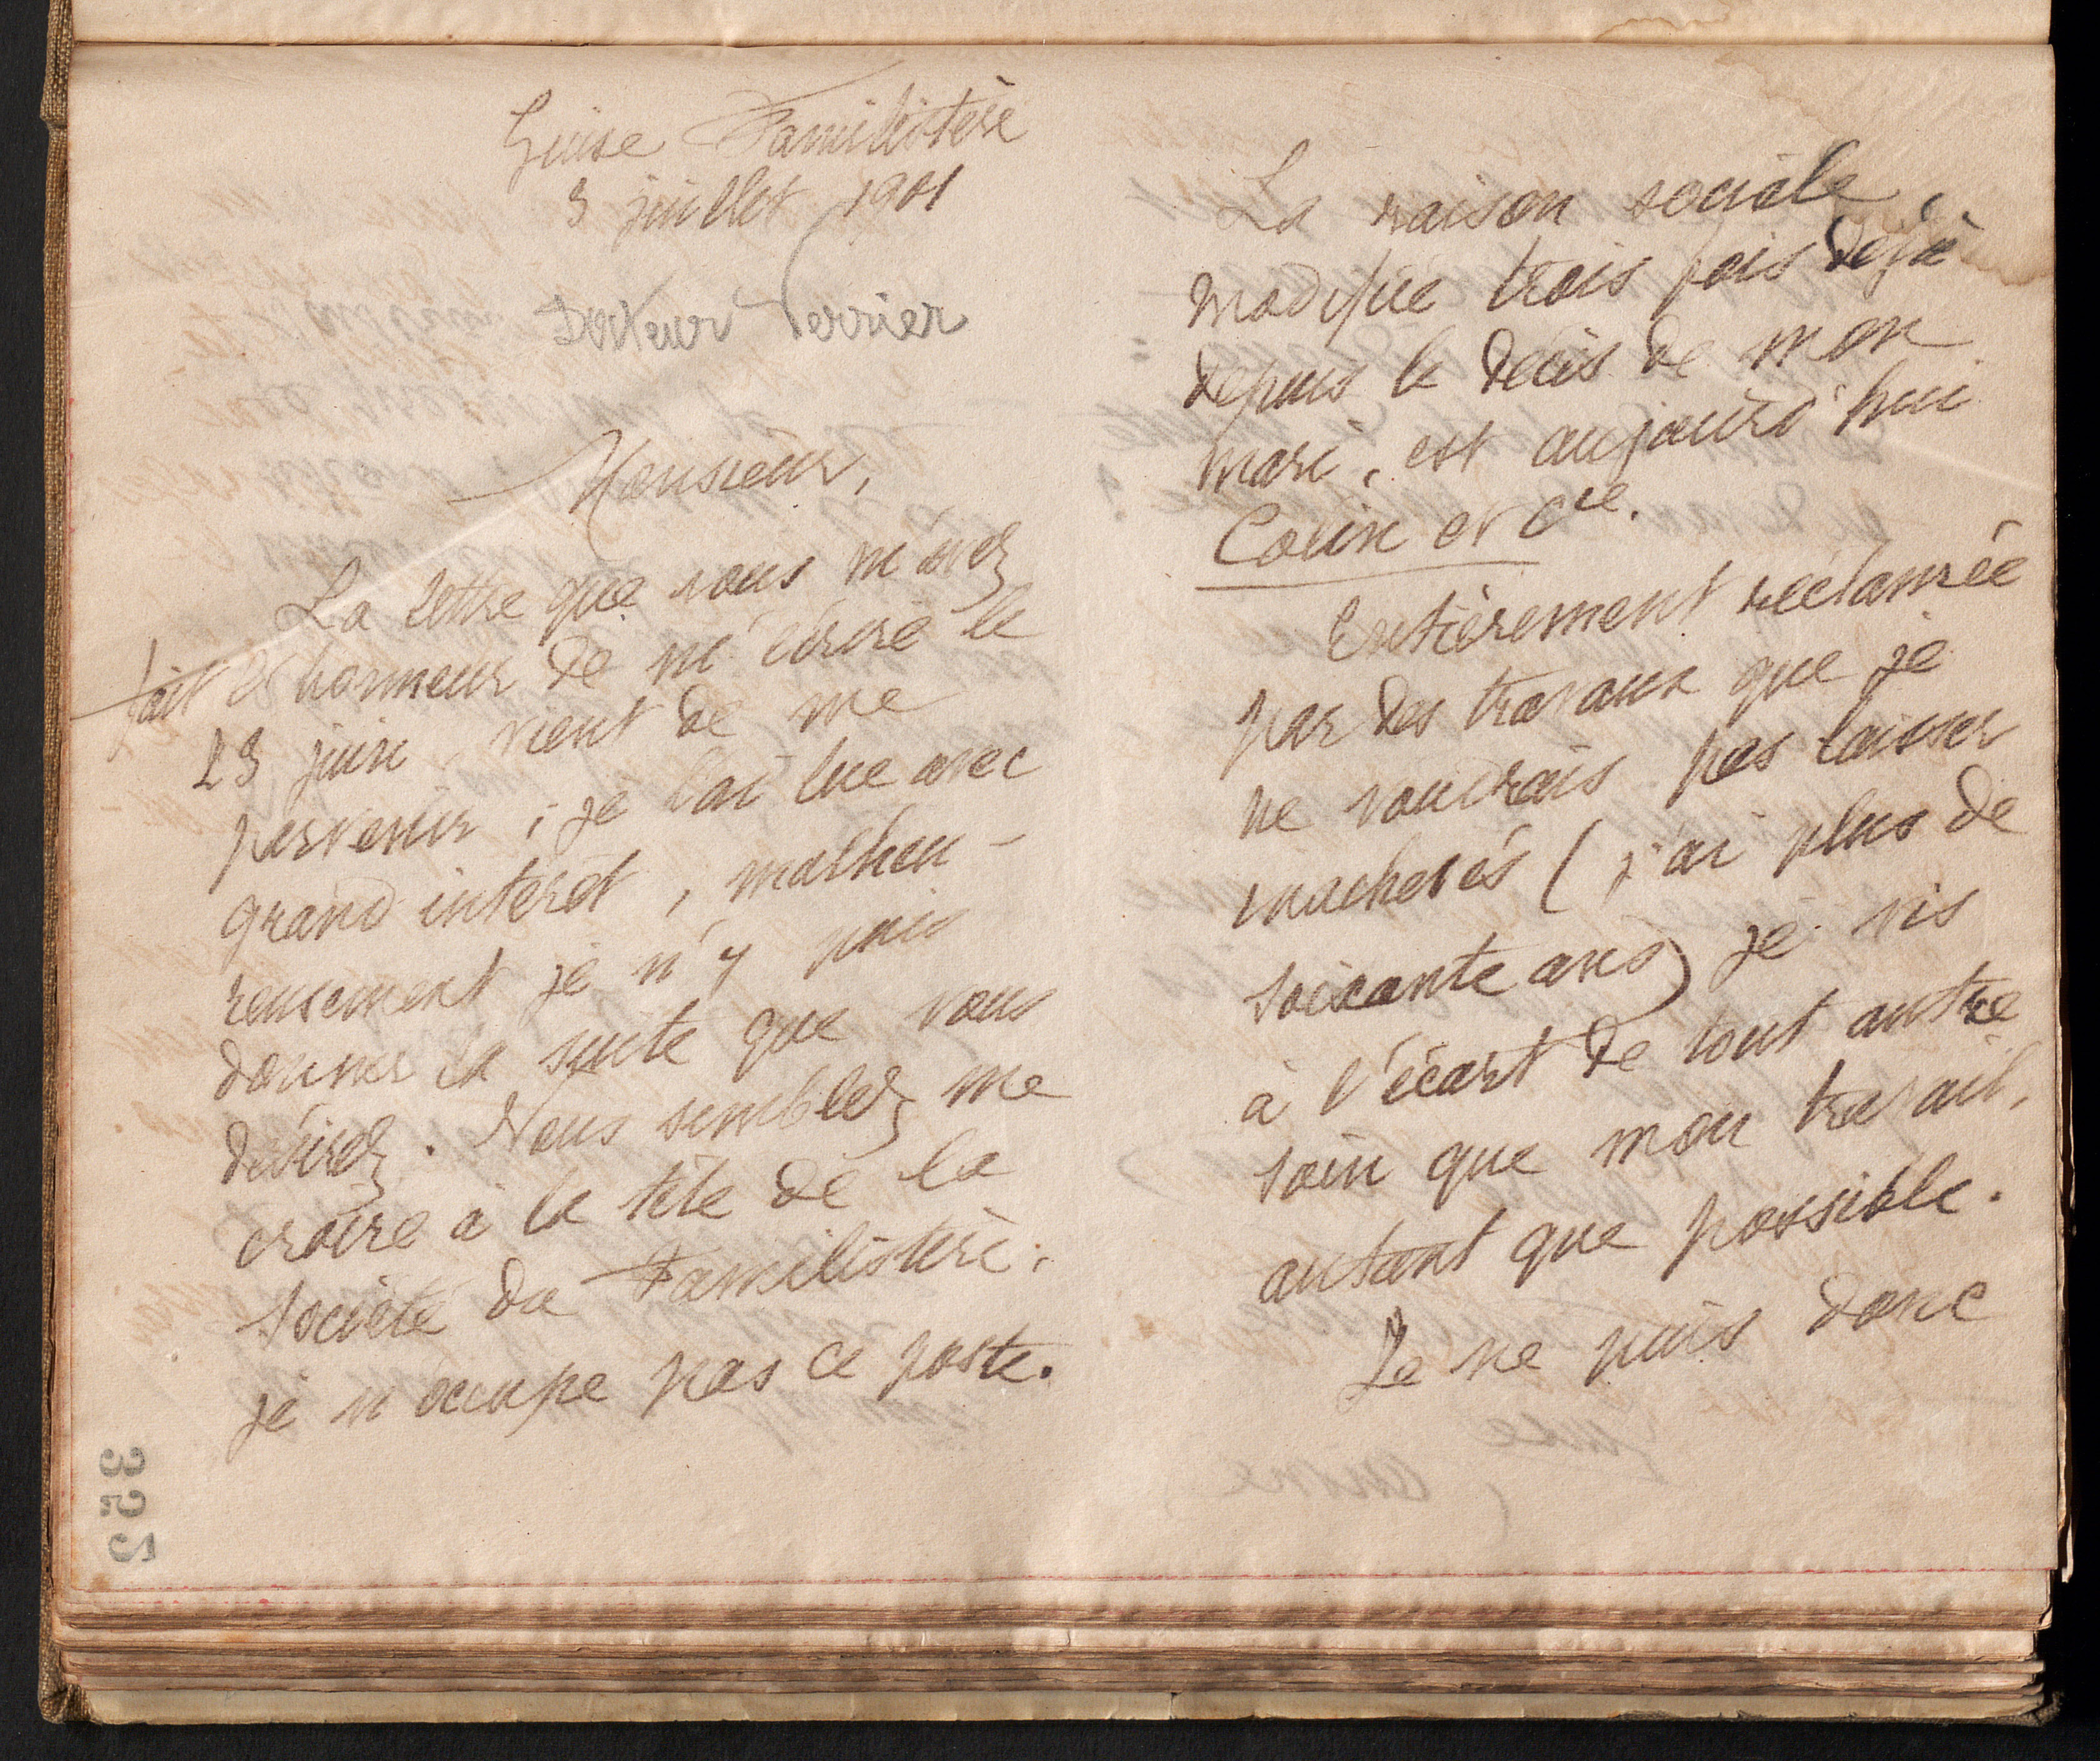 Guise Familistère
3 juillet 1901
Docteur Verrier
Monsieur,
La lettre que vous m'avez
fait l'honneur de m'écrire le
23 juin, vient de me
parvenir ; je l'ai lue avec
grand intérêt, malheu-
reusement je n'y puis
donner la suite que vous
désirez. Vous semblez me
croire à la tête de la
Société du Familistère.
je n'occupe pas ce poste.
La raison sociale,
modifiée trois fois déjà
depuis le décès de mon
mari, est aujourd'hui
Colin et Cie.
Entièrement réclamée
par des travaux que je
ne voudrais pas laisser
inachevés (j'ai plus de
soixante ans) je vis
à l'écart de tout autre
soin que mon travail,
autant que possible.
Je ne puis donc
352